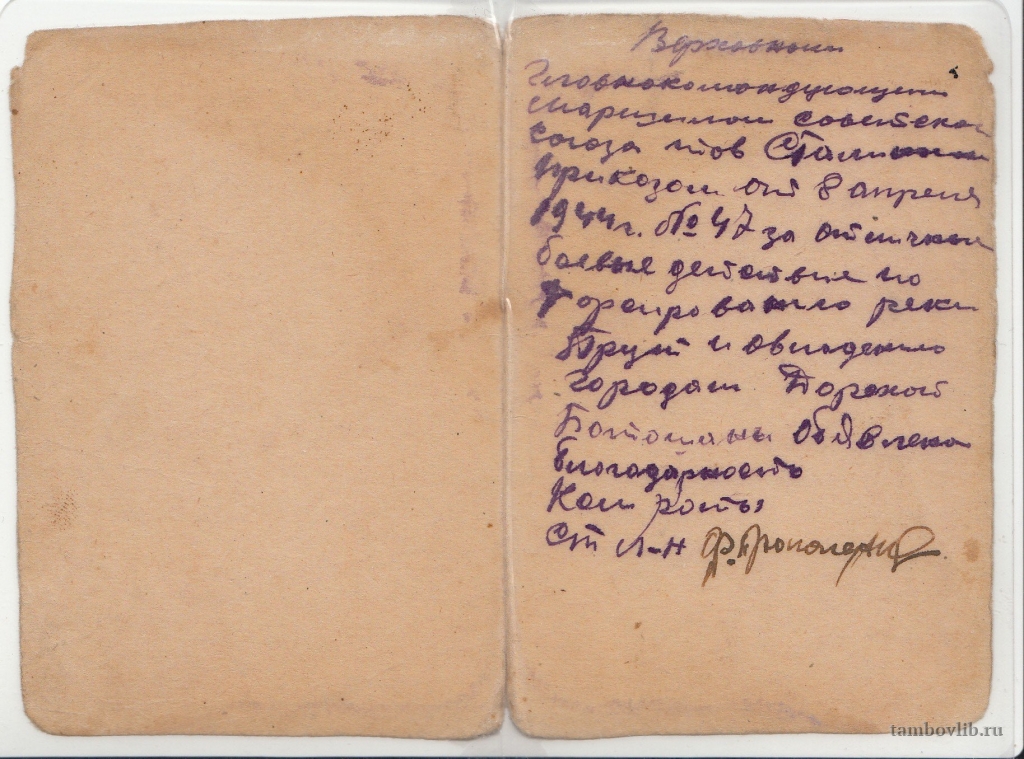 Верховным
Главнокомандующим
Маршалом советского
союза тов Сталиным
приказом от 8 апреля
1944г. № 47 за отличные
боевые действия по
Форсированию реки
Прут и овладению
городами Дорохой
Ботошаны Объявлена
благодарность
Ком роты
Ст л-н
tambovlib.ru